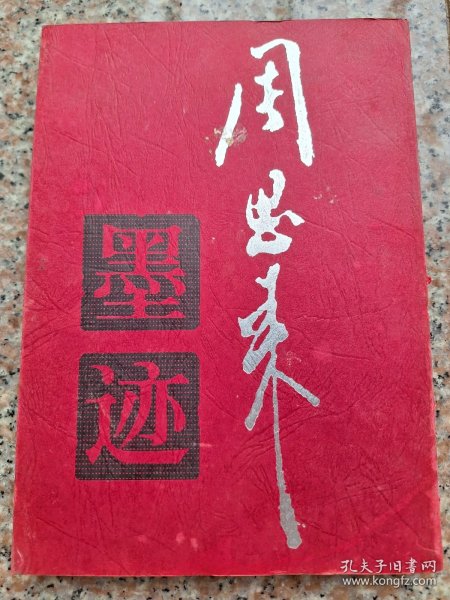 周恩来
墨迹
孔夫子旧书网
www.kongfz.com